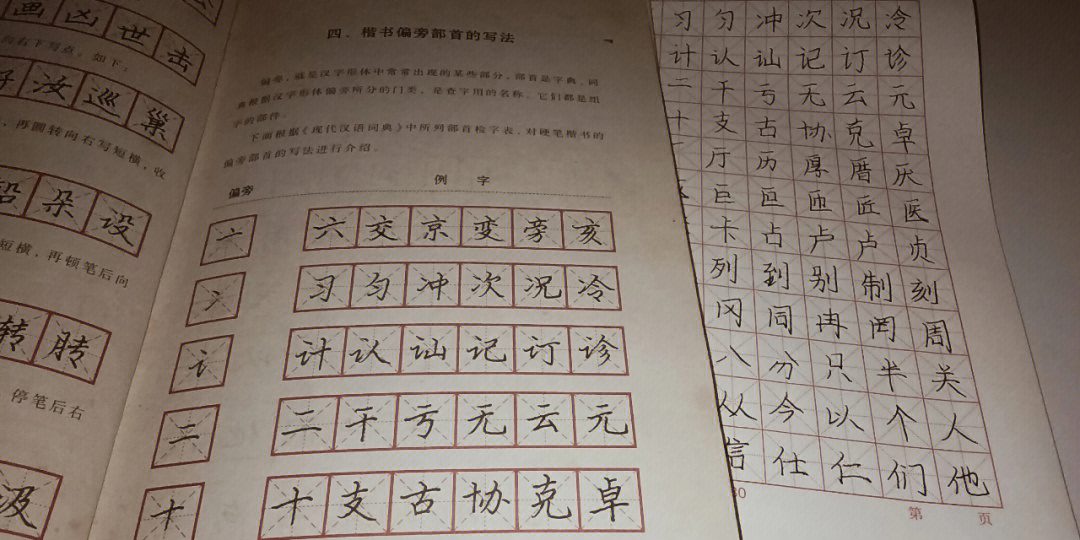 画凶世击
向右下写点，如下：
汝巡巢
再圆转向右写短横，收
铅朵设
短横，再顿笔后向
转转
停笔后右
汲
四、楷书偏旁部首的写法
偏旁，就是汉字形体中常常出现的某些部分，部首是字典、词
典根据汉字形体偏旁所分的门类，是查字用的名称。它们都是组
字的部件。
下面根据《现代汉语词典》中所列部首检字表，对硬笔楷书的
偏旁部首的写法进行介绍。
偏旁 例字
亠 六交京变旁亥
冫 习匀冲次况冷
讠 计认讪记订诊
二 二干亏无云元
十 十支古协克卓
习匀冲次况冷
计认讪记订诊
二干亏无云元
十支古协克卓
厅历厚厝厌
巨叵匝匠医
卡占卢卢贞
列到别制刻
冈同冉罔周
八分只半关
从今以个人
信仕仁们他
30
第 页